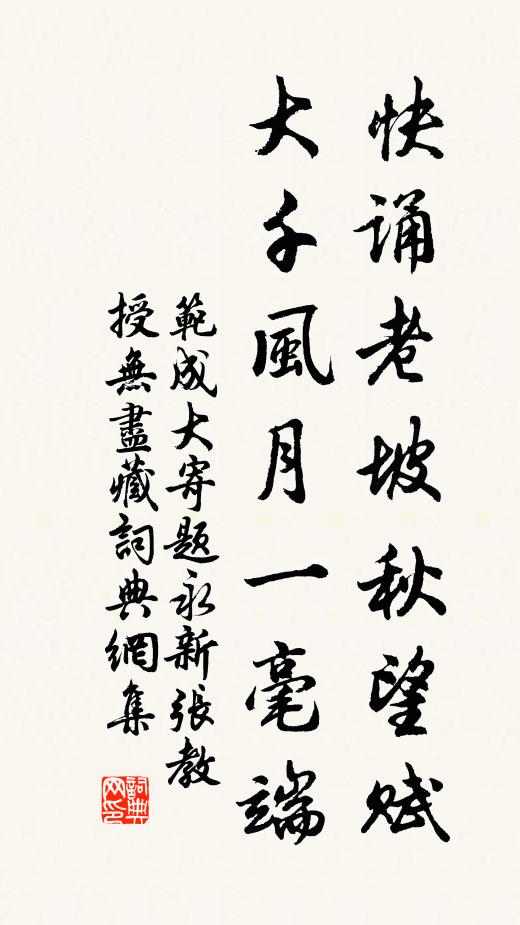 快诵老坡秋望赋
大千風月一毫端
範成大寄題永新張教
授無盡藏詞典網集
詞典网印